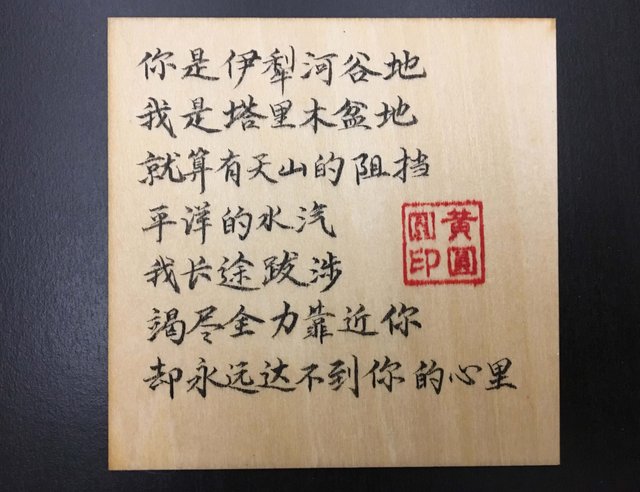 你是伊犁河谷地
我是塔里木盆地
就算有天山的阻挡
平洋的水汽
我长途跋涉
竭尽全力靠近你
却永远达不到你的心里
黄
印